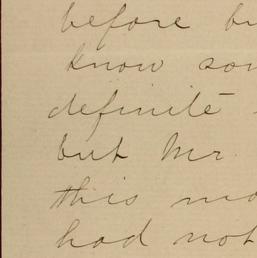 before
know
definite -
but Mr.
this
had not